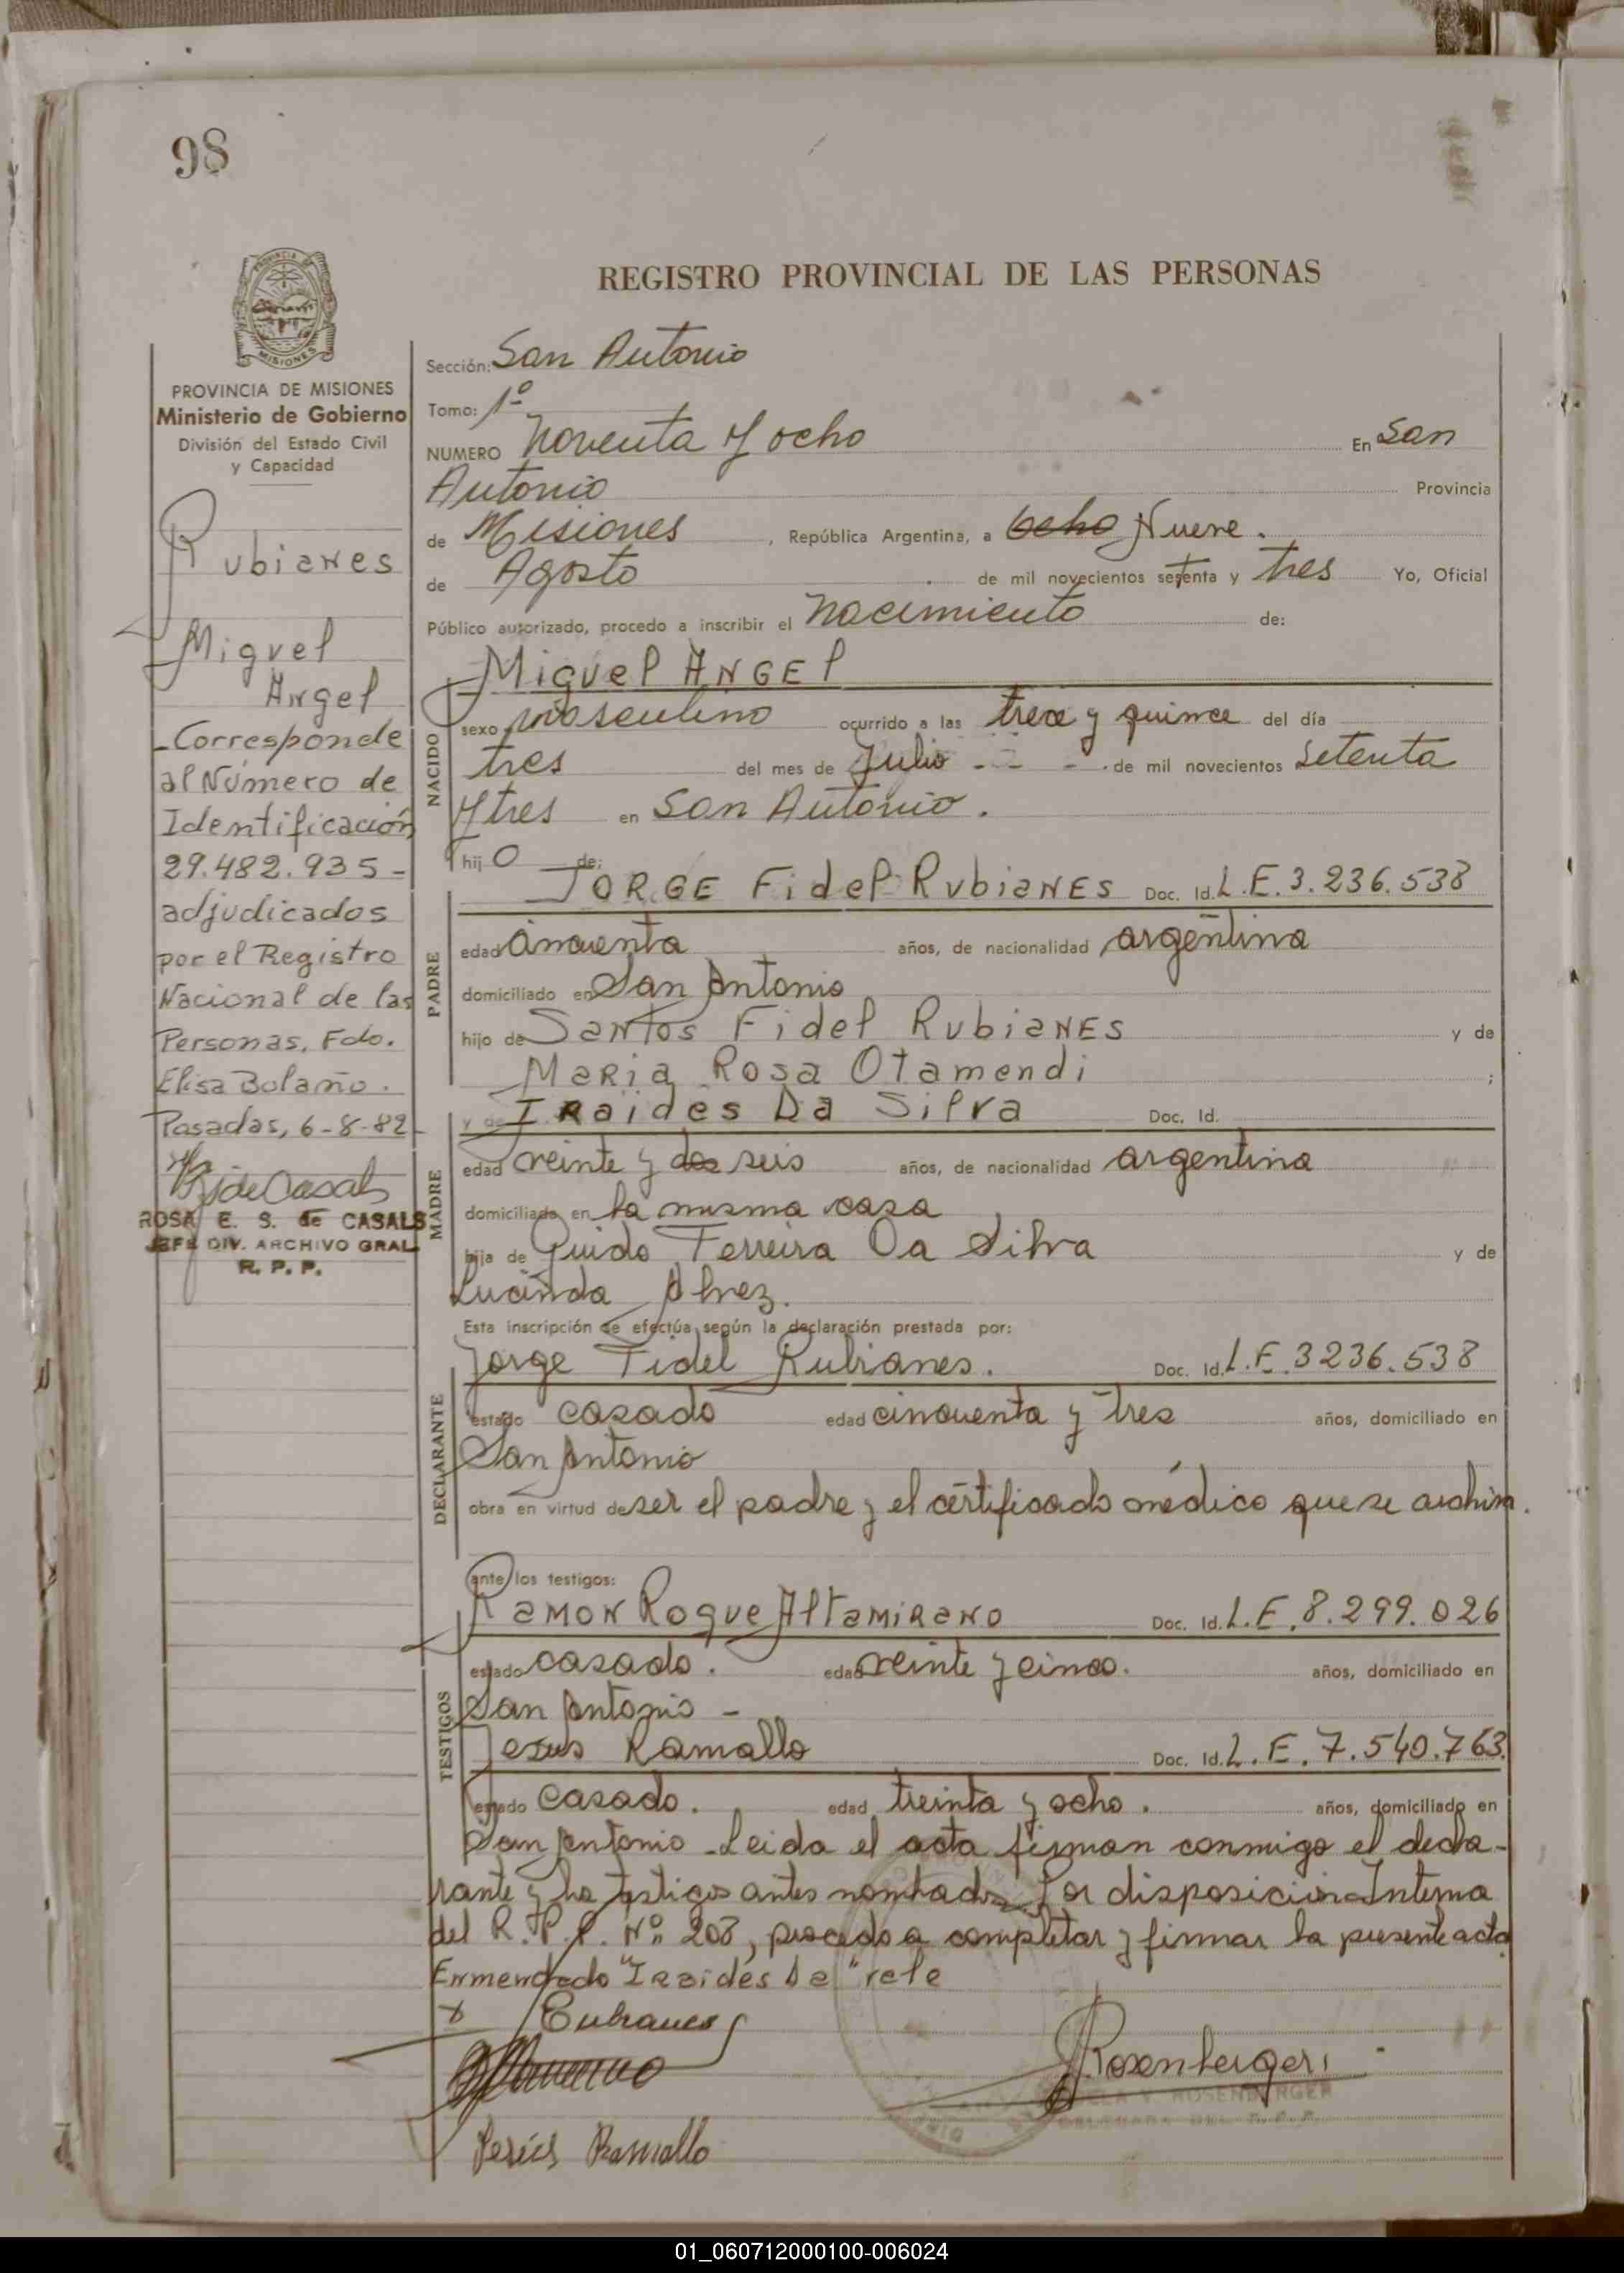 98
REGISTRO PROVINCIAL DE LAS PERSONAS
MISIONES
PROVINCIA DE MISIONES
Ministerio de Gobierno
División del Estado Civil
y Capacidad
Rubianes
Miguel
Angel
-Corresponde
al Número de
Identificación
29.482.935-
adjudicados
por el Registro
Nacional de las
Personas, Fdo.
Elisa Bolaño.
Posadas, 6-8-82-
ROSA E. S. de CASALS
JEFE DIV. ARCHIVO GRAL
R. P. P.
Sección: San Antonio
Tomo: 1º
NUMERO Noventa y ocho En San
Antonio Provincia
de Misiones, República Argentina, a Ocho Nueve.
de Agosto de mil novecientos setenta y tres Yo, Oficial
Público autorizado, procedo a inscribir el Nacimiento de:
Miguel ANGEl
NACIDO
sexo masculino ocurrido a las trece y quince del día
tres del mes de Julio - - - . de mil novecientos setenta
y tres en San Antonio.
hij o de:
JORGE Fidel RubiaNES Doc. Id. L.E. 3.236.538
PADRE
edad cincuenta años, de nacionalidad argentina
domiciliado en San Antonio
hijo de Santos Fidel RubiaNES y de
Maria Rosa Otamendi ;
y de IRaides Da Silva Doc. Id.
MADRE
edad veinte y dos seis años, de nacionalidad argentina
domiciliada en la misma casa
hija de Guido Ferreira Da Silva y de
Lucinda Alvez.
Esta inscripción se efectúa según la declaración prestada por:
Jorge Fidel Rubianes. Doc. Id. L.E. 3236.538
DECLARANTE
estado casado edad cincuenta y tres años, domiciliado en
San Antonio
obra en virtud de ser el padre y el certificado médico que se archiva.
ante los testigos:
RAMON Roque AltaMIRANO Doc. Id. L.E. 8.299.026
TESTIGOS
estado casado. edad veinte y cinco. años, domiciliado en
San Antonio -
Jesus Ramallo Doc. Id. L.E. 7.540.763.
estado casado. edad treinta y ocho. años, domiciliado en
San Antonio - Leida el acta firman conmigo el decla-
rante y los testigos antes nombrados. Por disposición Interna
del R.P.P. Nº 208, procedo a completar y firmar la presente acta
Enmendado "Iraides Da" vale
x Rubianes
Rosenberger
ROSENBERGER
Jesús Ramallo
01_060712000100-006024